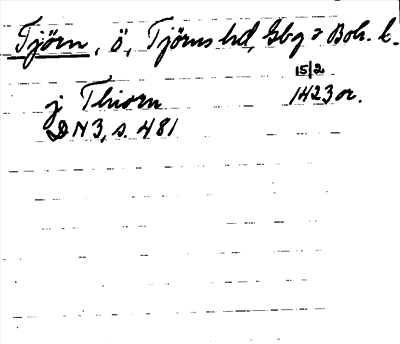 Tjörn, ö, Tjörns hd, Gbg o Boh. l.
15/2
j Thiorn 1423 or.
DN 3, s. 481